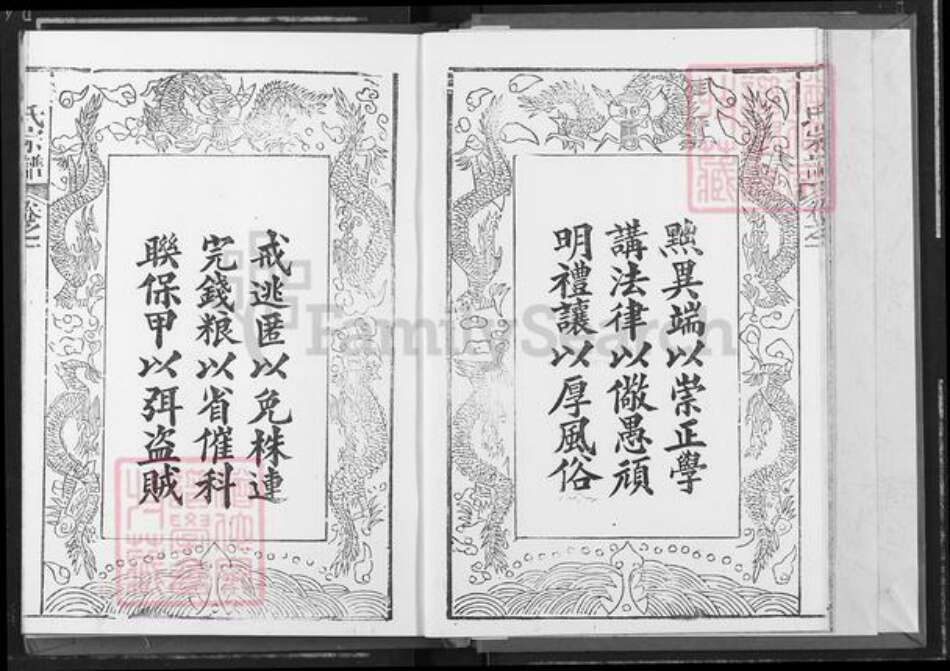 黜異端以崇正學
講法律以儆愚頑
明禮讓以厚風俗
戒逃匿以免株連
完錢粮以省催科
聯保甲以弭盗賊
氏宗譜
卷之一
氏宗譜
卷之一
FamilySearch